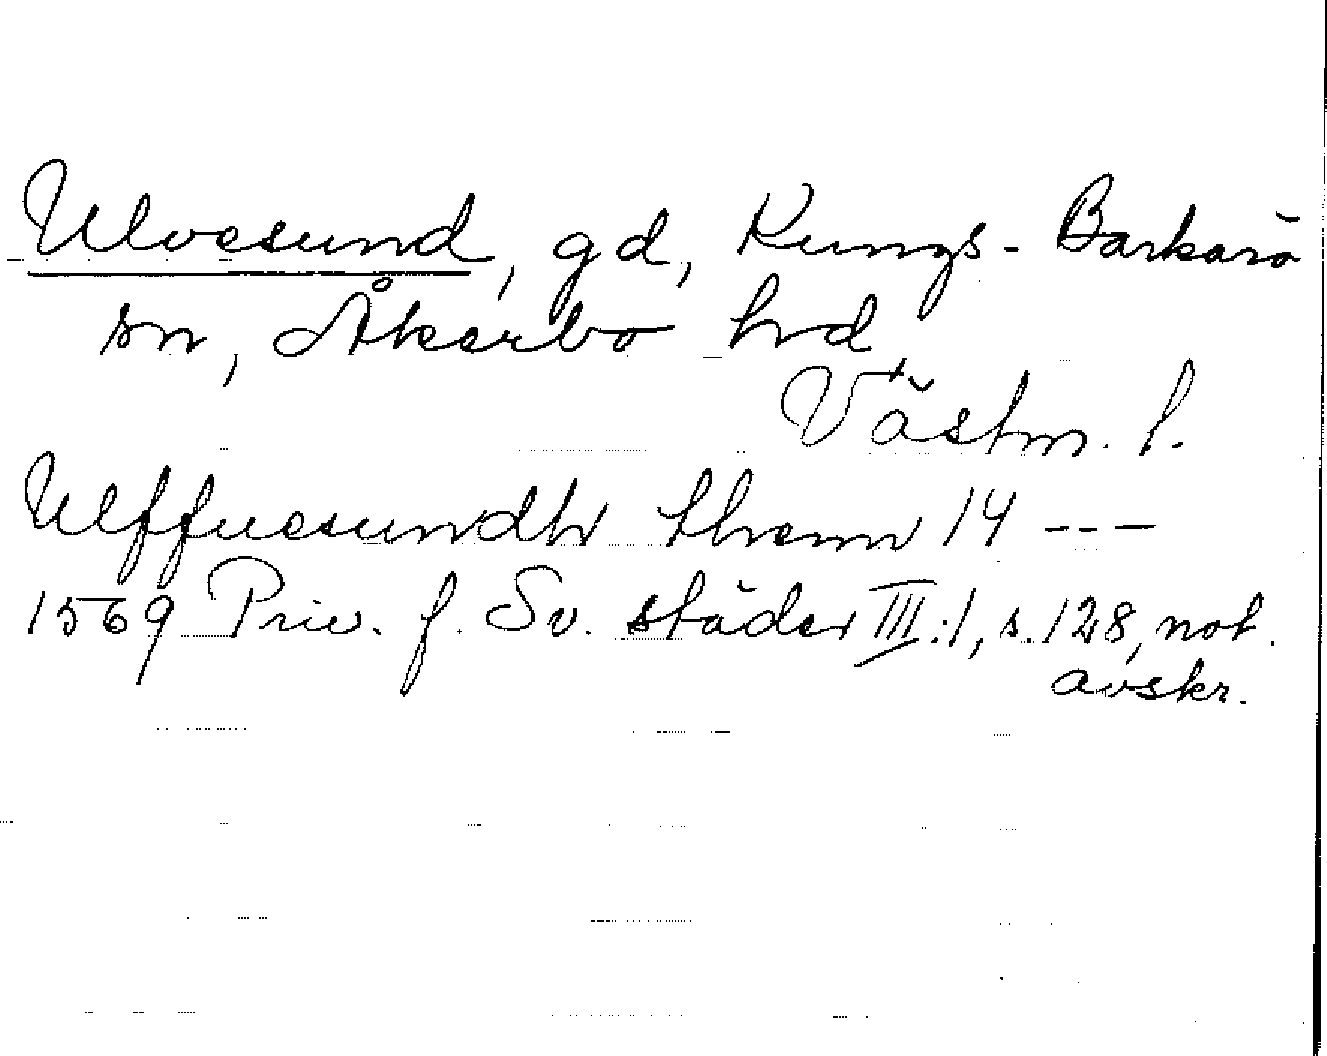 Ulvesund, gd, Kungs-Barkarö
sn, Åkerbo hd,
Västm. l.
Ulffuesundh thenn 14 ---
1569 Priv. f. Sv. städer III:1, s. 128, not.
avskr.